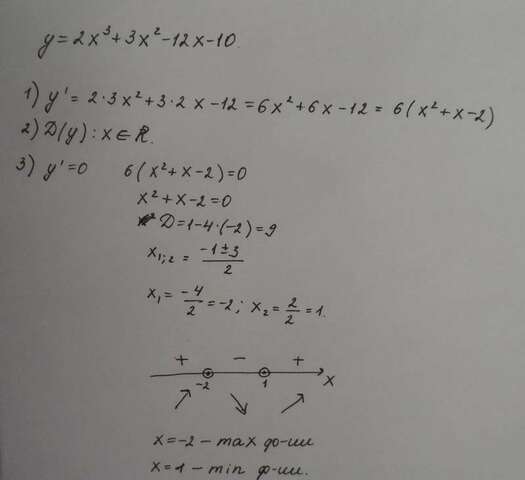 y = 2x³ + 3x² - 12x - 10
1) y' = 2·3x² + 3·2x - 12 = 6x² + 6x - 12 = 6(x² + x - 2)
2) D(y): x ∈ R.
3) y' = 0 6(x² + x - 2) = 0
x² + x - 2 = 0
D = 1 - 4·(-2) = 9
x₁;₂ = (-1 ± 3)/2
x₁ = -4/2 = -2; x₂ = 2/2 = 1.
+ - +
-2 1 x
x = -2 - max ф-ии
x = 1 - min ф-ии.